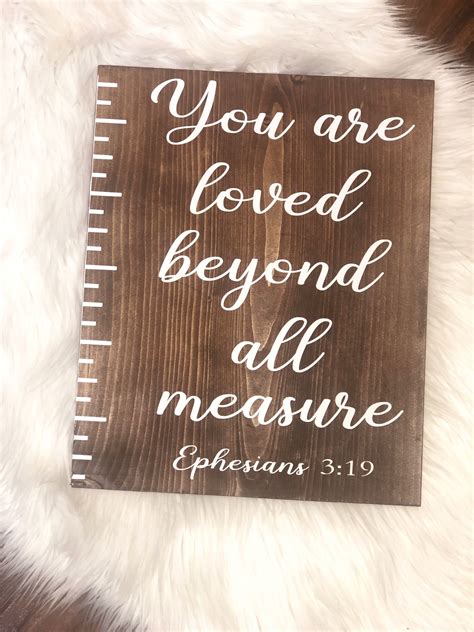 You are
loved
beyond
all
measure
Ephesians 3:19